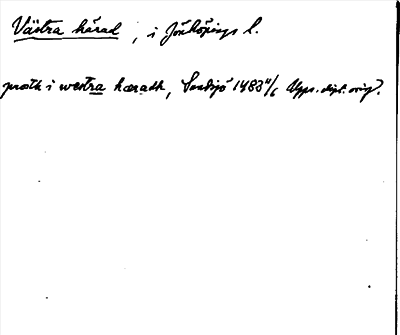 Västra härad, i Jönköpings l.
prosth i westra hæradh, Sandsjö 1488 4/6 Upps. dipl. orig.